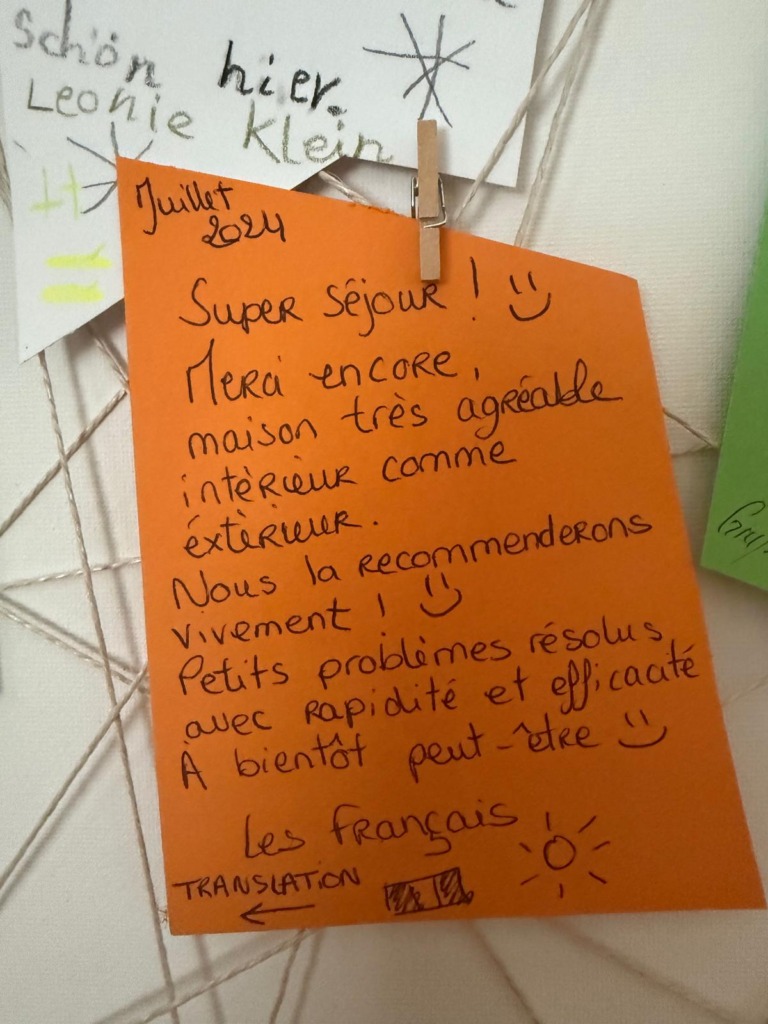 schön hier.
Leonie Klein
Juillet
2024
Super séjour ! :)
Merci encore,
maison très agréable
intèrieur comme
éxtèrieur.
Nous la recommenderons
vivement ! :)
Petits problèmes résolus
avec rapidité et efficacité
À bientôt peut-être :)
Les français
TRANSLATION
←